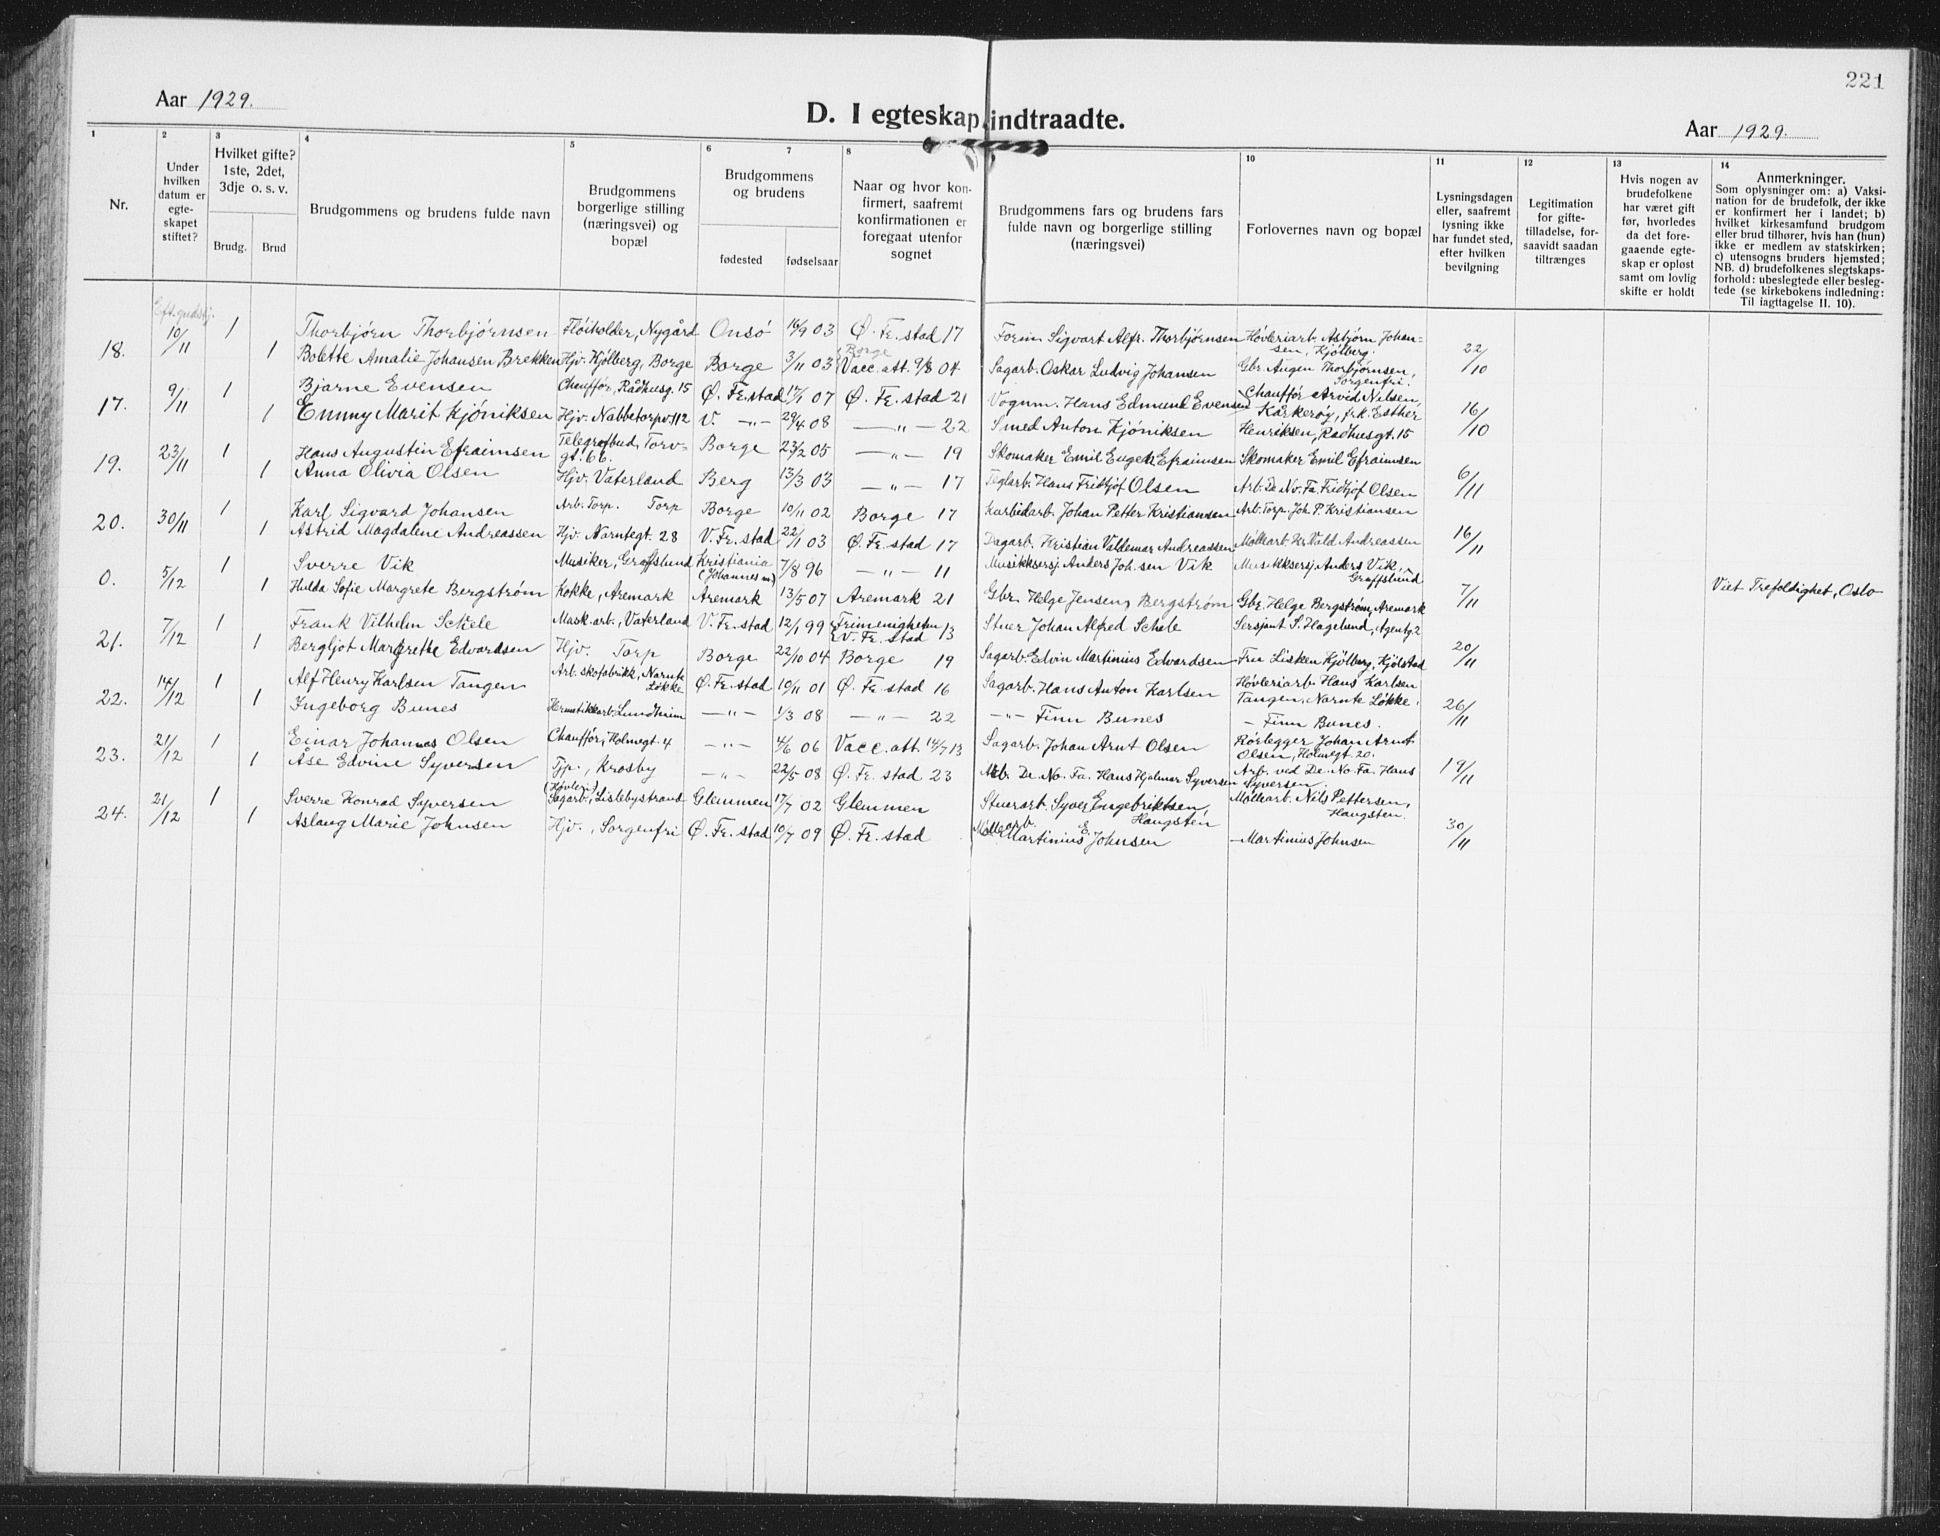 221
Aar 1929.
D. I egteskap indtraadte.
Aar 1929.
1 2 3 4 5 6 7 8 10 11 12 13 14
Nr.
Under hvilken datum er egteskapet stiftet?
Hvilket gifte? 1ste, 2det, 3dje o. s. v.
Brudg. Brud
Brudgommens og brudens fulde navn
Brudgommens borgerlige stilling (næringsvei) og bopæl
Brudgommens og brudens
fødested fødselsaar
Naar og hvor konfirmert, saafremt konfirmationen er foregaat utenfor sognet
Brudgommens fars og brudens fars fulde navn og borgerlige stilling (næringsvei)
Forlovernes navn og bopæl
Lysningsdagen eller, saafremt lysning ikke har fundet sted, efter hvilken bevilgning
Legitimation for giftetilladelse, forsaavidt saadan tiltrænges
Hvis nogen av brudefolkene har været gift før, hvorledes da det foregaaende egteskap er opløst samt om lovlig skifte er holdt
Anmerkninger.
Som oplysninger om: a) Vaksination for de brudefolk, der ikke er konfirmert her i landet; b) hvilket kirkesamfund brudgom eller brud tilhører, hvis han (hun) ikke er medlem av statskirken; c) utensogns bruders hjemsted; NB. d) brudefolkenes slegtskapsforhold: ubeslegtede eller beslegtede (se kirkebokens indledning: Til iagttagelse II. 10).
18. 10/11 1 Thorbjørn Thorbjørnsen Fløiholder, Nygård Onsö 16/9 03 Ø. Fr.stad 17 Form. Sigvart Alfr. Thorbjörnsen Høvleriarb. Asbjørn Johansen, Kjölberg.
1 Bolette Amalie Johansen Brekken Hjv. Kjølberg, Borge Borge 3/11 03 Borge Vacc. att. 9/8 04 Sagarb. Oskar Ludvig Johansen Gbr. Augen Thorbjörnsen, Sorgenfri. 22/10
17. 9/11 1 Bjarne Evensen Chauffør, Rådhusg. 15 Ø. Fr.stad 17/1 07 Ø. Fr. stad 21 Vognm. Hans Edmund Evensen Chauffør Arvid Nilsen, Kråkerøy, frk. Esther
1 Emmy Marit Kjöniksen Hjv. Nabbetorpv. 112 V. -"- 29/4 08 -"- 22 Smed Anton Kjöniksen Henriksen, Rådhusgt. 15 16/10
19. 23/11 1 Hans Augustin Efraimsen Telegrafbud, Torvgt. 66. Borge 23/2 05 -"- 19 Skomaker Emil Eugen Efraimsen Skomaker Emil Efraimsen
1 Anna Olivia Olsen Hjv. Vaterland Berg 13/3 03 -"- 17 Teglarb. Hans Fridtjof Olsen Arb. De No. Fa. Fridtjof Olsen 6/11
20. 30/11 1 Karl Sigvard Johansen Arb. Torp. Torp Borge 10/11 02 Borge 17 Karbidarb. Johan Petter Kristiansen Arb. Torp. Joh. P. Kristiansen
1 Astrid Magdalene Andreassen Hjv. Narntegt. 28 V. Fr. stad 22/1 03 Ø. Fr. stad 17 Dagarb. Kristian Valdemar Andreassen Møllearb. Kr. Vald Andreassen 16/11
0. 5/12 1 Sverre Vik Musiker, Gråffslund Kristiania (Johannes m) 7/8 96 -"- 11 Musikksersj. Anders Joh.sen Vik Musikksersj. Anders Vik, Gråffslund
1 Hulda Sofie Margrete Bergström Kokke, Aremark Aremark 13/5 07 Aremark 21 Gbr. Helge Jensen Bergström Gbr. Helge Bergström, Aremark 7/11 Viet Trefoldighet, Oslo
21. 7/12 1 Frank Vilhelm Schele Mask.arb., Vaterland V. Fr. stad 12/1 99 Frimenigheten V. Fr. stad 13 Stuer Johan Alfred Schele Sersjant S. Hagelund, Agentg. 2
1 Bergljot Margrethe Edvardsen Hjv. Torp Borge 22/10 04 Borge 19 Sagarb. Edvin Martinius Edvardsen Fru Lisken Kjölberg, Kjölstad 20/11
22. 14/12 1 Alf Henry Karlsen Tangen Arb. skofabrikk, Narnte Løkke Ø. Fr. stad 10/11 01 Ø. Fr. stad 16 Sagarb. Hans Anton Karlsen Høvleriarb. Hans Karlsen Tangen, Narnte Løkke.
1 Ingeborg Bunes Hermetikkarb. Lundheim -"- 1/3 08 -"- 22 -"- Finn Bunes - Finn Bunes. 26/11
23. 21/12 1 Einar Johannes Olsen Chauffør, Holmegt. 4 -"- 4/6 06 Vacc. att. 14/7 13 Sagarb. Johan Arnt Olsen Rörlegger Johan Arnt Olsen, Holmegt 20.
1 Åse Edvine Syversen Tjp., Krosby -"- 22/5 08 Ø. Fr. stad 23 Arb. De No. Fa. Hans Hjalmar Syversen Arb. ved De. No. Fa. Hans Syversen. 19/11
24. 21/12 1 Sverre Konrad Syversen (Høvleri) Sagarb., Lislebystrand Glemmen 17/7 02 Glemmen Stuerarb. Syver Engebriktsen, Haugsten Møllearb. Nils Pettersen, Haugsten.
1 Aslaug Marie Johnsen Hjv., Sorgenfri Ø. Fr. stad 10/7 09 Ø. Fr. stad Møllearb. Martinius E. Johnsen - Martinius Johnsen 30/11